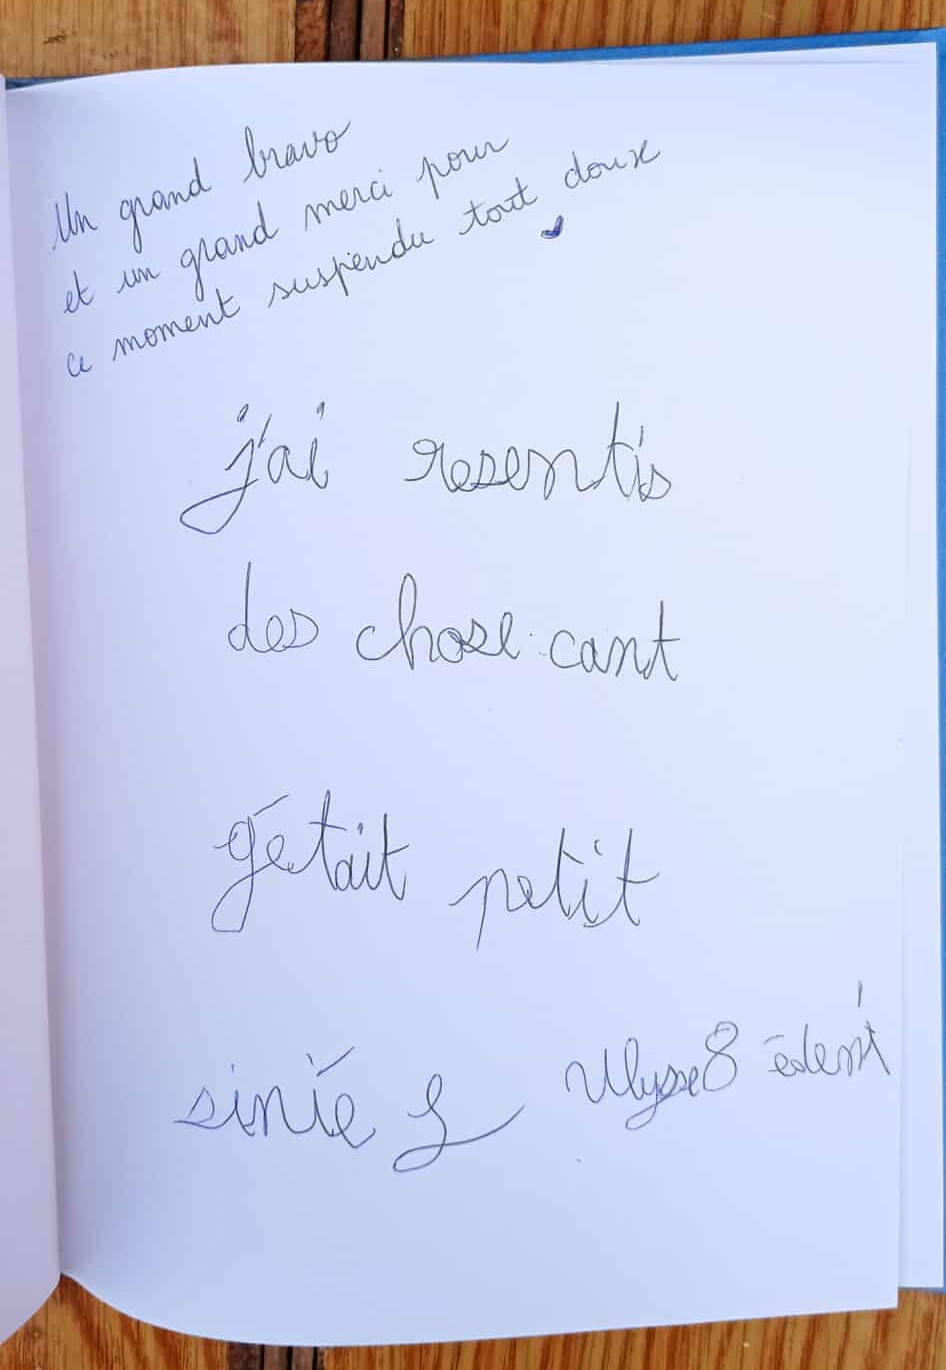 Un grand bravo
et un grand merci pour
ce moment suspendu tout doux
j'ai resentis
des chose cant
gétait petit
sinié
Ulysse 8